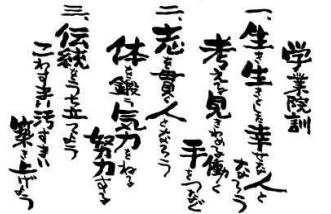 学業院訓
一、生き生きとした幸せな人と
なろう
考えを見きわめる働く
手をつなぐ
二、志を貫く人となろう
体を鍛う気力をねる
努力する
三、伝統をうち立てよう
こわすまい汚すまい
築き上げよう